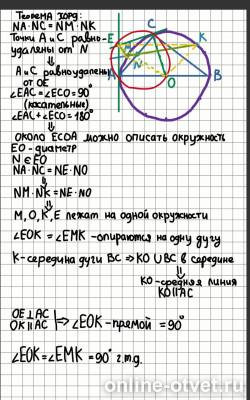 Теорема хорд:
NA·NC=NM·NK
Точки A и C равно-
удалены от N
⇓
A и C равноудалены
от OE
∠EAC=∠ECO=90°
(касательные)
∠EAC+∠ECO=180°
⇓
около ECOA можно описать окружность
EO-диаметр
N∈EO
NA·NC=NE·NO
⇓
NM·NK=NE·NO
⇓
M, O, K, E лежат на одной окружности
∠EOK=∠EMK-опираются на одну дугу
K-середина дуги BC ⇒ KO∪BC в середине
⇓
KO-средняя линия
KO∥AC
OE⊥AC
OK∥AC
∠EOK-прямой = 90°
∠EOK=∠EMK=90° ч.т.д.
E
C
K
M
N
A
O
B
online-otvet.ru